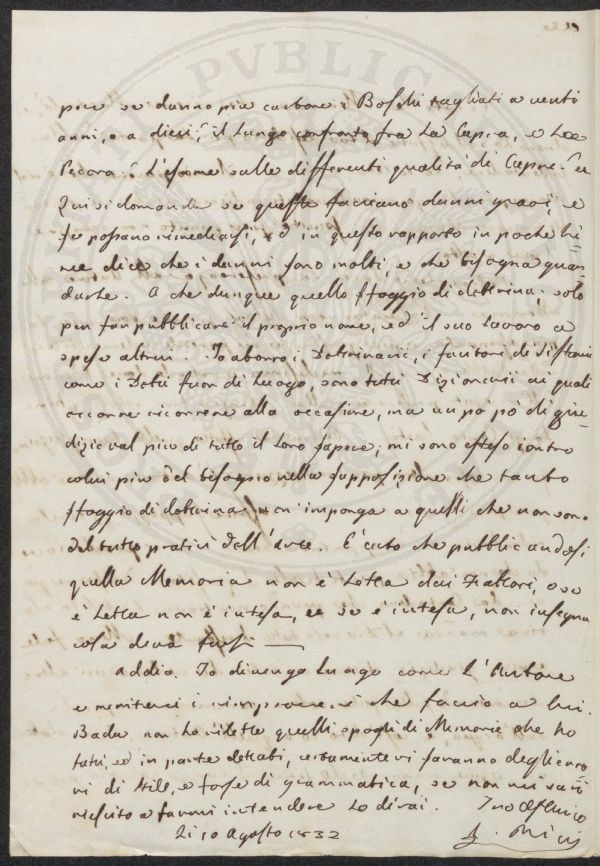 poco se danno più carbone i Boschi tagliati a venti
anni, o a dieci? il lungo confronto fra La Capra, e La
Pecora? L'esame sulle differenti qualità di Capre? et
Qui si domanda se queste facciano danni gravi, e
se possano rimediarsi, ed in questo rapporto in poche li-
nee dice che i danni sono molti, e che bisogna guar-
darle. A che dunque quello sfoggio di dottrina; solo
per far pubblicare il proprio nome, ed il suo Lavoro a
spese altrui. Io aborro i Dottrinarii, i facitori di sistemi
come i Dotti fuor di Luogo, sono tutti Dizionarii ai quali
occorre ricorrere alla occasione, ma un po pò di giu-
dizio val più di tutto il Loro sapere; mi sono esteso contro
colui più del bisogno nella supposizione che tanto
sfoggio di dottrina non imponga a quelli che non sono
del tutto pratici dell'arte. E' certo che pubblicandosi
quella Memoria non è Letta dai Fattori, o se
è Letta non è intesa, e se è intesa, non insegna
cosa deva farsi
Addio. Io divengo Lungo come L'Autore
e meriterei i rimproveri che faccio a Lui.
Bada non ho rilette quelli spogli di Memorie che ho
fatti, ed in parte dettati, certamente vi saranno degli erro-
ri di stile, e forse di grammatica, se non mi sarò
riescito a farmi intendere Lo dirai. Tuo Aff. Amico
Li 10 Agosto 1832